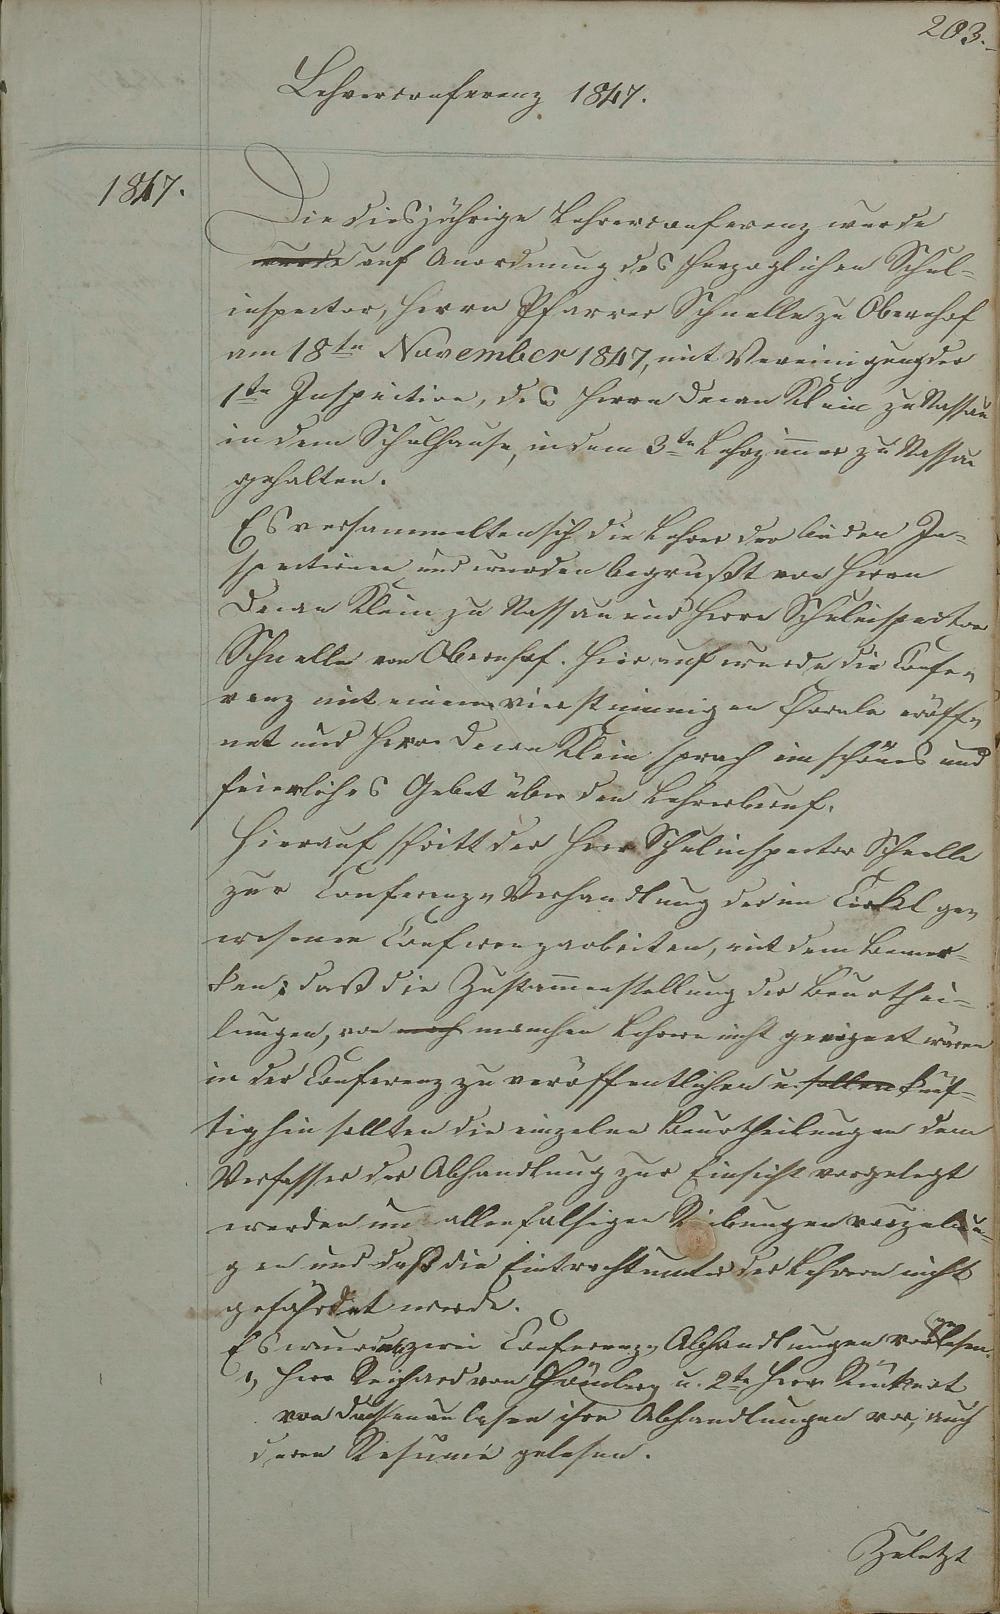 203.
Lehrerconferenz 1847.
1847.
Die diesjährige Lehrerconferenz wurde
wurde auf Anordnung des Herzoglichen Schul-
inspector, Herrn Pfarrer Schnelle zu Obernhof
am 18ten November 1847, mit Vereinigung der
1ten Inspection, des Herrn Decan Klein zu Nassau
in dem Schulhause, in dem 3ten Lehrzimmer zu Nassau
gehalten.
Es versammelten sich die Lehrer der beiden In-
spectionen und wurden begrüßt von Herrn
Decan Klein zu Nassau und Herrn Schulinspector
Schnelle von Obernhof. Hierauf wurde die Confe-
renz mit einem vierstimmigen Chorale eröff-
net und Herr Decan Klein sprach ein schönes und
feierliches Gebet über den Lehrerberuf.
Hierauf schritt der Herr Schulinspector Schnelle
zur Conferenz-Verhandlung der im Cirkel ge-
wesenen Conferenzarbeiten, mit dem Bemer-
ken; daß die Zusammenstellung der Beurthei-
lungen, von noch manchen Lehrern nicht geeignet wären
in der Conferenz zu veröffentlichen u. sollen künf-
tighin sollten die einzelnen Beurtheilungen dem
Verfasser der Abhandlung zur Einsicht vorgelegt
werden um allenfalsigen Reibungen vorzubeu-
gen und daß die Eintracht unter den Lehrern nicht
gefährdet werde.
Es wurden zwei Conferenz-Abhandlungen vorgelesen.
1, Herr Reichard von Hömberg u. 2te Herr Rückert
von Dausenau lasen ihre Abhandlungen vor, auch
deren Resumé gelesen.
Zuletzt